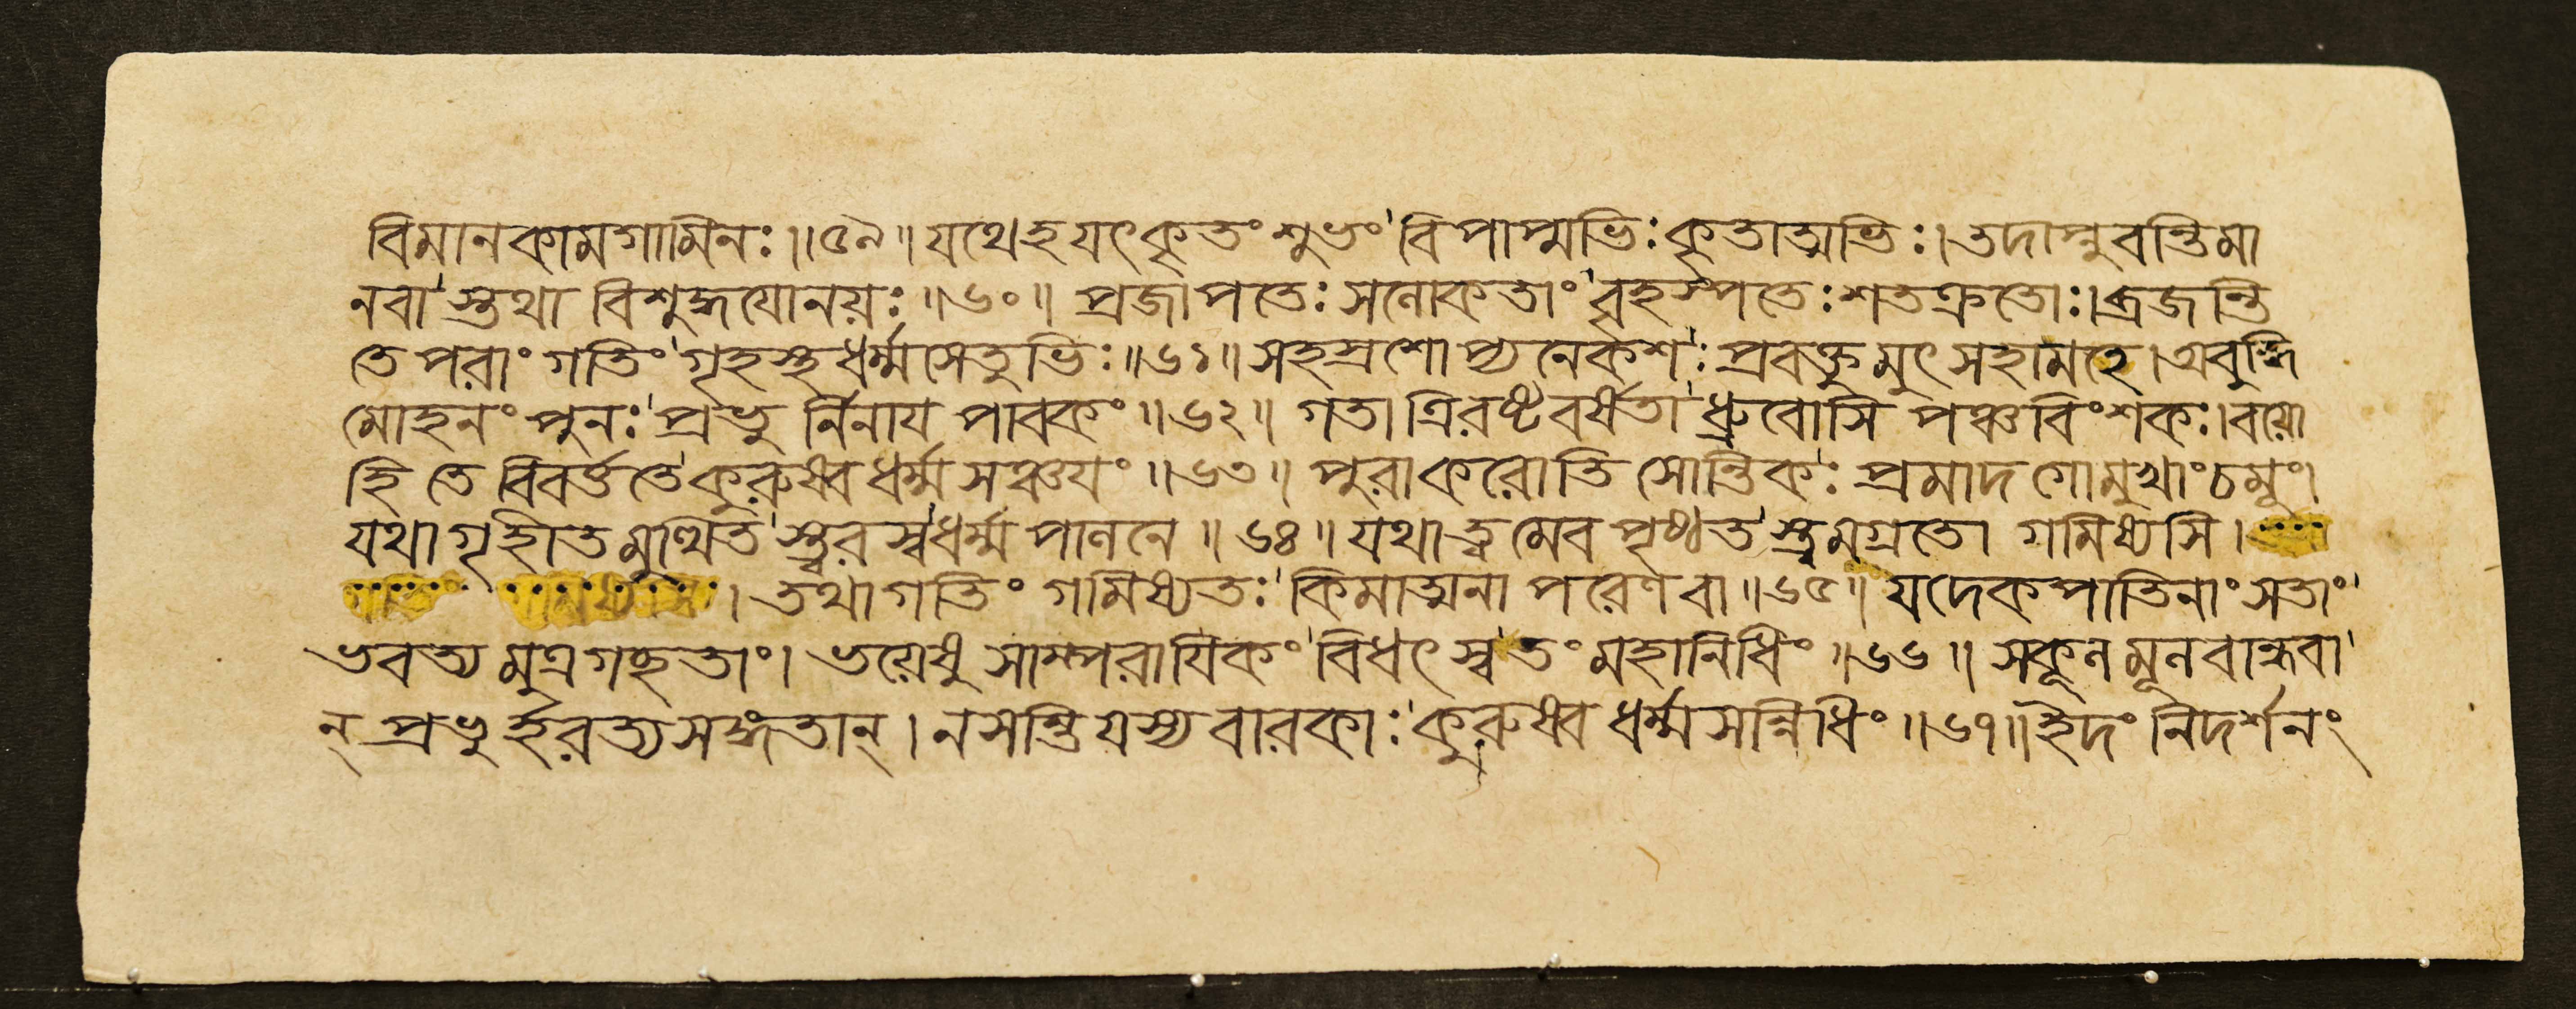 বিমানকামগামিনঃ॥৫৯॥যথেহযৎকৃতংশুভং'বিপাপ্মভিঃকৃতাত্মভিঃ।তদাপ্নুবন্তিমা
নবা'স্তথা বিশুদ্ধযোনয়ঃ॥৬০॥ প্রজাপতেঃসলোকতাং'বৃহস্পতেঃশতক্রতোঃ।ব্রজন্তি
তে পরাং গতিং'গৃহস্থধর্ম্মসেতুভিঃ॥৬১॥ সহস্রশোপ্যনেকশ'ঃপ্রবক্তুমুৎসহামহে।অবুদ্ধি
মোহনং পুনঃ'প্রভু র্নিনায পাবকং॥৬২॥ গতা ত্রিরষ্টবর্ষতা'ধ্রুবোসি পঞ্চবিংশকঃ।বয়ো
হি তে বিবর্ত্ততে'কুরুষ্বধর্ম্মসঞ্চযং॥৬৩॥ পুরাকরোতি সোন্তিক'ঃ প্রমাদগোমুখাংচমূং।
যথাগৃহীতমুত্থিত'স্ত্বরস্বধর্ম্মপালনে॥৬৪॥ যথাত্বমেবপৃষ্ঠত'স্ত্বমগ্রতো গমিষ্যসি।
। তথাগতিং গমিষ্যতঃ'কিমাত্মনা পরেণ বা॥৬৫॥ যদেকপাতিনাং সতাং'
ভবত্যমুত্রগচ্ছতাং। ভয়েষু সাম্পরাযিকং'বিধৎস্ব তং মহানিধিং॥৬৬॥ সকূলমূলবান্ধবা'
ন্ প্রভুর্হরত্যসঙ্গতান্।নসন্তিযস্যবারকাঃ'কুরুষ্বধর্ম্মসন্নিধিং॥৬৭॥ইদং নিদর্শনং